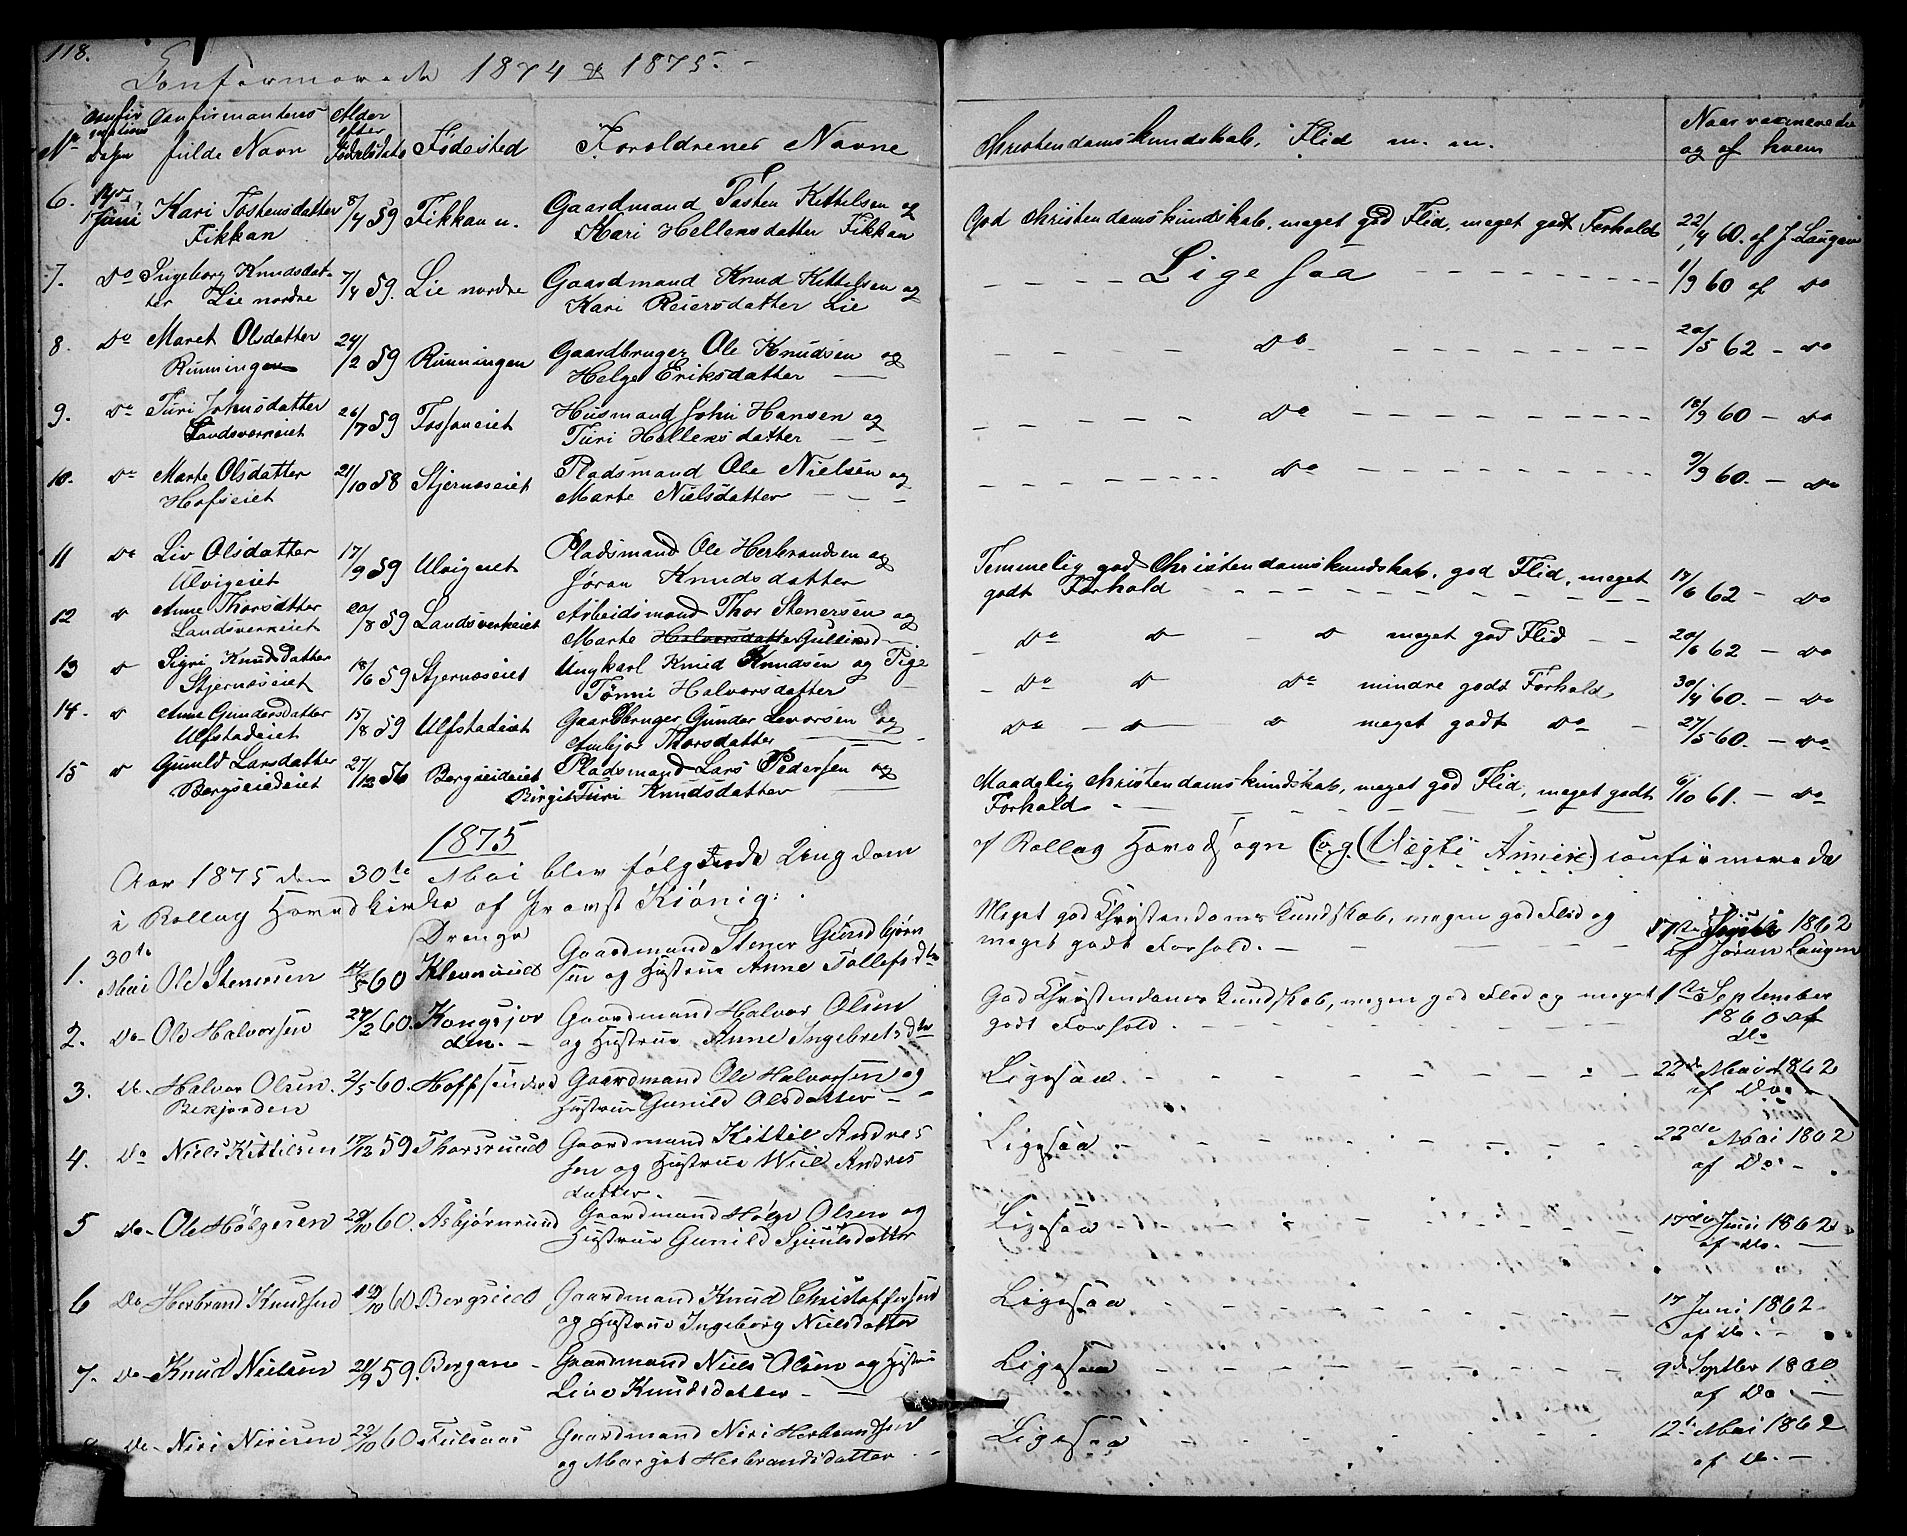 118.
Confirmerede 1874 & 1875.
No Confirmations Dagen Confirmantens fulde Navn Alder efter Fødselsdato Fødested Forældrenes Navne Christendomskundskab, Flid m. m. Naar vaccinerede og af hvem
6. 14de Juni Kari Tostensdatter 8/4 59 Fikkan n. Gaardmand Tosten Kittelsen og God Christendomskundskab, meget god Flid, meget godt Forhold 22/4 60. af J. Laugen
Fikkan Kari Hellensdatter Fikkan
7. Do Ingeborg Knudsdat- 7/4 59. Lie nordre Gaardmand Knud Kittelsen og Lige saa 1/9 60 af Do
ter Lie nordre Kari Reiersdatter Lie
8. Do Maret Olsdatter 24/2 59 Runningen Gaardbruger Ole Knudsen og Do 20/5 62 - Do
Runningen Helge Eriksdatter
9. Do Turi Johnsdatter 26/7 59 Fossaneiet Husmand John Hansen og Do 18/9 60 - Do
Landsverkeiet Turi Hellensdatter
10. Do Marte Olsdatter 21/10 58 Stjernæseiet Pladsmand Ole Nielsen og Do 9/9 60. - Do
Hofseiet Marte Nielsdatter
11 Do Liv Olsdatter 17/9 59 Ulvigeiet Pladsmand Ole Herbrandsen og Temmelig god Christendomskundskab, god Flid, meget 17/6 62 - Do
Ulvigeiet Jøran Knudsdatter godt Forhold
12 D Anne Thorsdatter 20/8 59 Landsverkeiet Arbeidsmand Thor Stenersen og Do D - D meget god Flid 20/6 62 - Do
Landsverkeiet Marte Halvorsdatter
13 D Sigri Knudsdatter 18/6 59 Stjernæseiet Ungkarl Knud Knudsen og Pige Do D Do mindre godt Forhold 30/4 60. - Do
Stjernæseiet Tønne Halvorsdatter
14. D Anne Gundersdatter 15/8 59 Ulfstadeiet Gaardbruger Gunder Levorsen og Do - D D meget godt Do 27/5 60. - Do
Ulfstadeiet Anbjor Thorsdatter
15 D Gunild Larsdatter 27/12 56 Bergseideiet Pladsmand Lars Pedersen og Maadelig Christendomskundskab, meget god Flid, meget godt 6/10 61. - Do
Bergseideiet Birgit Turi Knudsdatter Forhold
1875
Aar 1875 den 30te Mai blev følgende Ungdom af Rollag Hovedsogn (og (Vegli Annex) confirmerede
i Rollag Hovedkirke af Provst Kiønig:
Drenge
1. 30te Mai Ole Stenersen 60 Klevmoen Gaardmand Stener Gundbjørn Meget god Christendoms Kundskab, megen god Flid og 17de Juni 1862
sen og Hustrue Anne Tollefsdtr meget godt Forhold. - af Jøran Laugen
2. Do- Ole Halvorsen 27/2 60. Kongsjor Gaardmand Halvor Olsen God Christendoms Kundskab, megen god Flid og meget 1ste September
den. - og Hustrue Anne Ingebretsdtr godt Forhold. 1860 af Do
3. Do- Halvor Olsen 2/5 60. Hoffsønderd Gaardmand Ole Halvorsen og Ligesaa. 22de Mai 1862
Bekjorden Hustrue Gunild Olsdatter - af Do -
4. Do Niels Kittilsen 17/12 59 Thorsrud Gaardmand Kittil Andres Ligesaa. 22de Mai 1862
sen og Hustrue Andres af Do -
datter.
5 Do- Ole Hølgesen 29/10 60. Asbjørnrud Gaardmand Hølge Olsen og Ligesaa 17de Juni 1862
Hustrue Gunild Sjuulsdatter af Do.
6 Do Herbrand Knudsen /10 60 Bergseid Gaardmand Knud Christoffersen Ligesaa 17 Juni 1862
og Hustrue Ingeborg Nielsdatter af Do. -
7. Do- Knud Nielsen 21/9 59. Bergan - Gaardmand Niels Olsen og Hustrue Ligesaa 9de Septber 1860
Livo Knudsdatter - af Do -
Do- Niri Nirisen 22/10 60 Fulsaas Gaardmand Niri Herbrandsen Ligesaa 12te Mai 1862
og Margit Herbrandsdatter af D. -